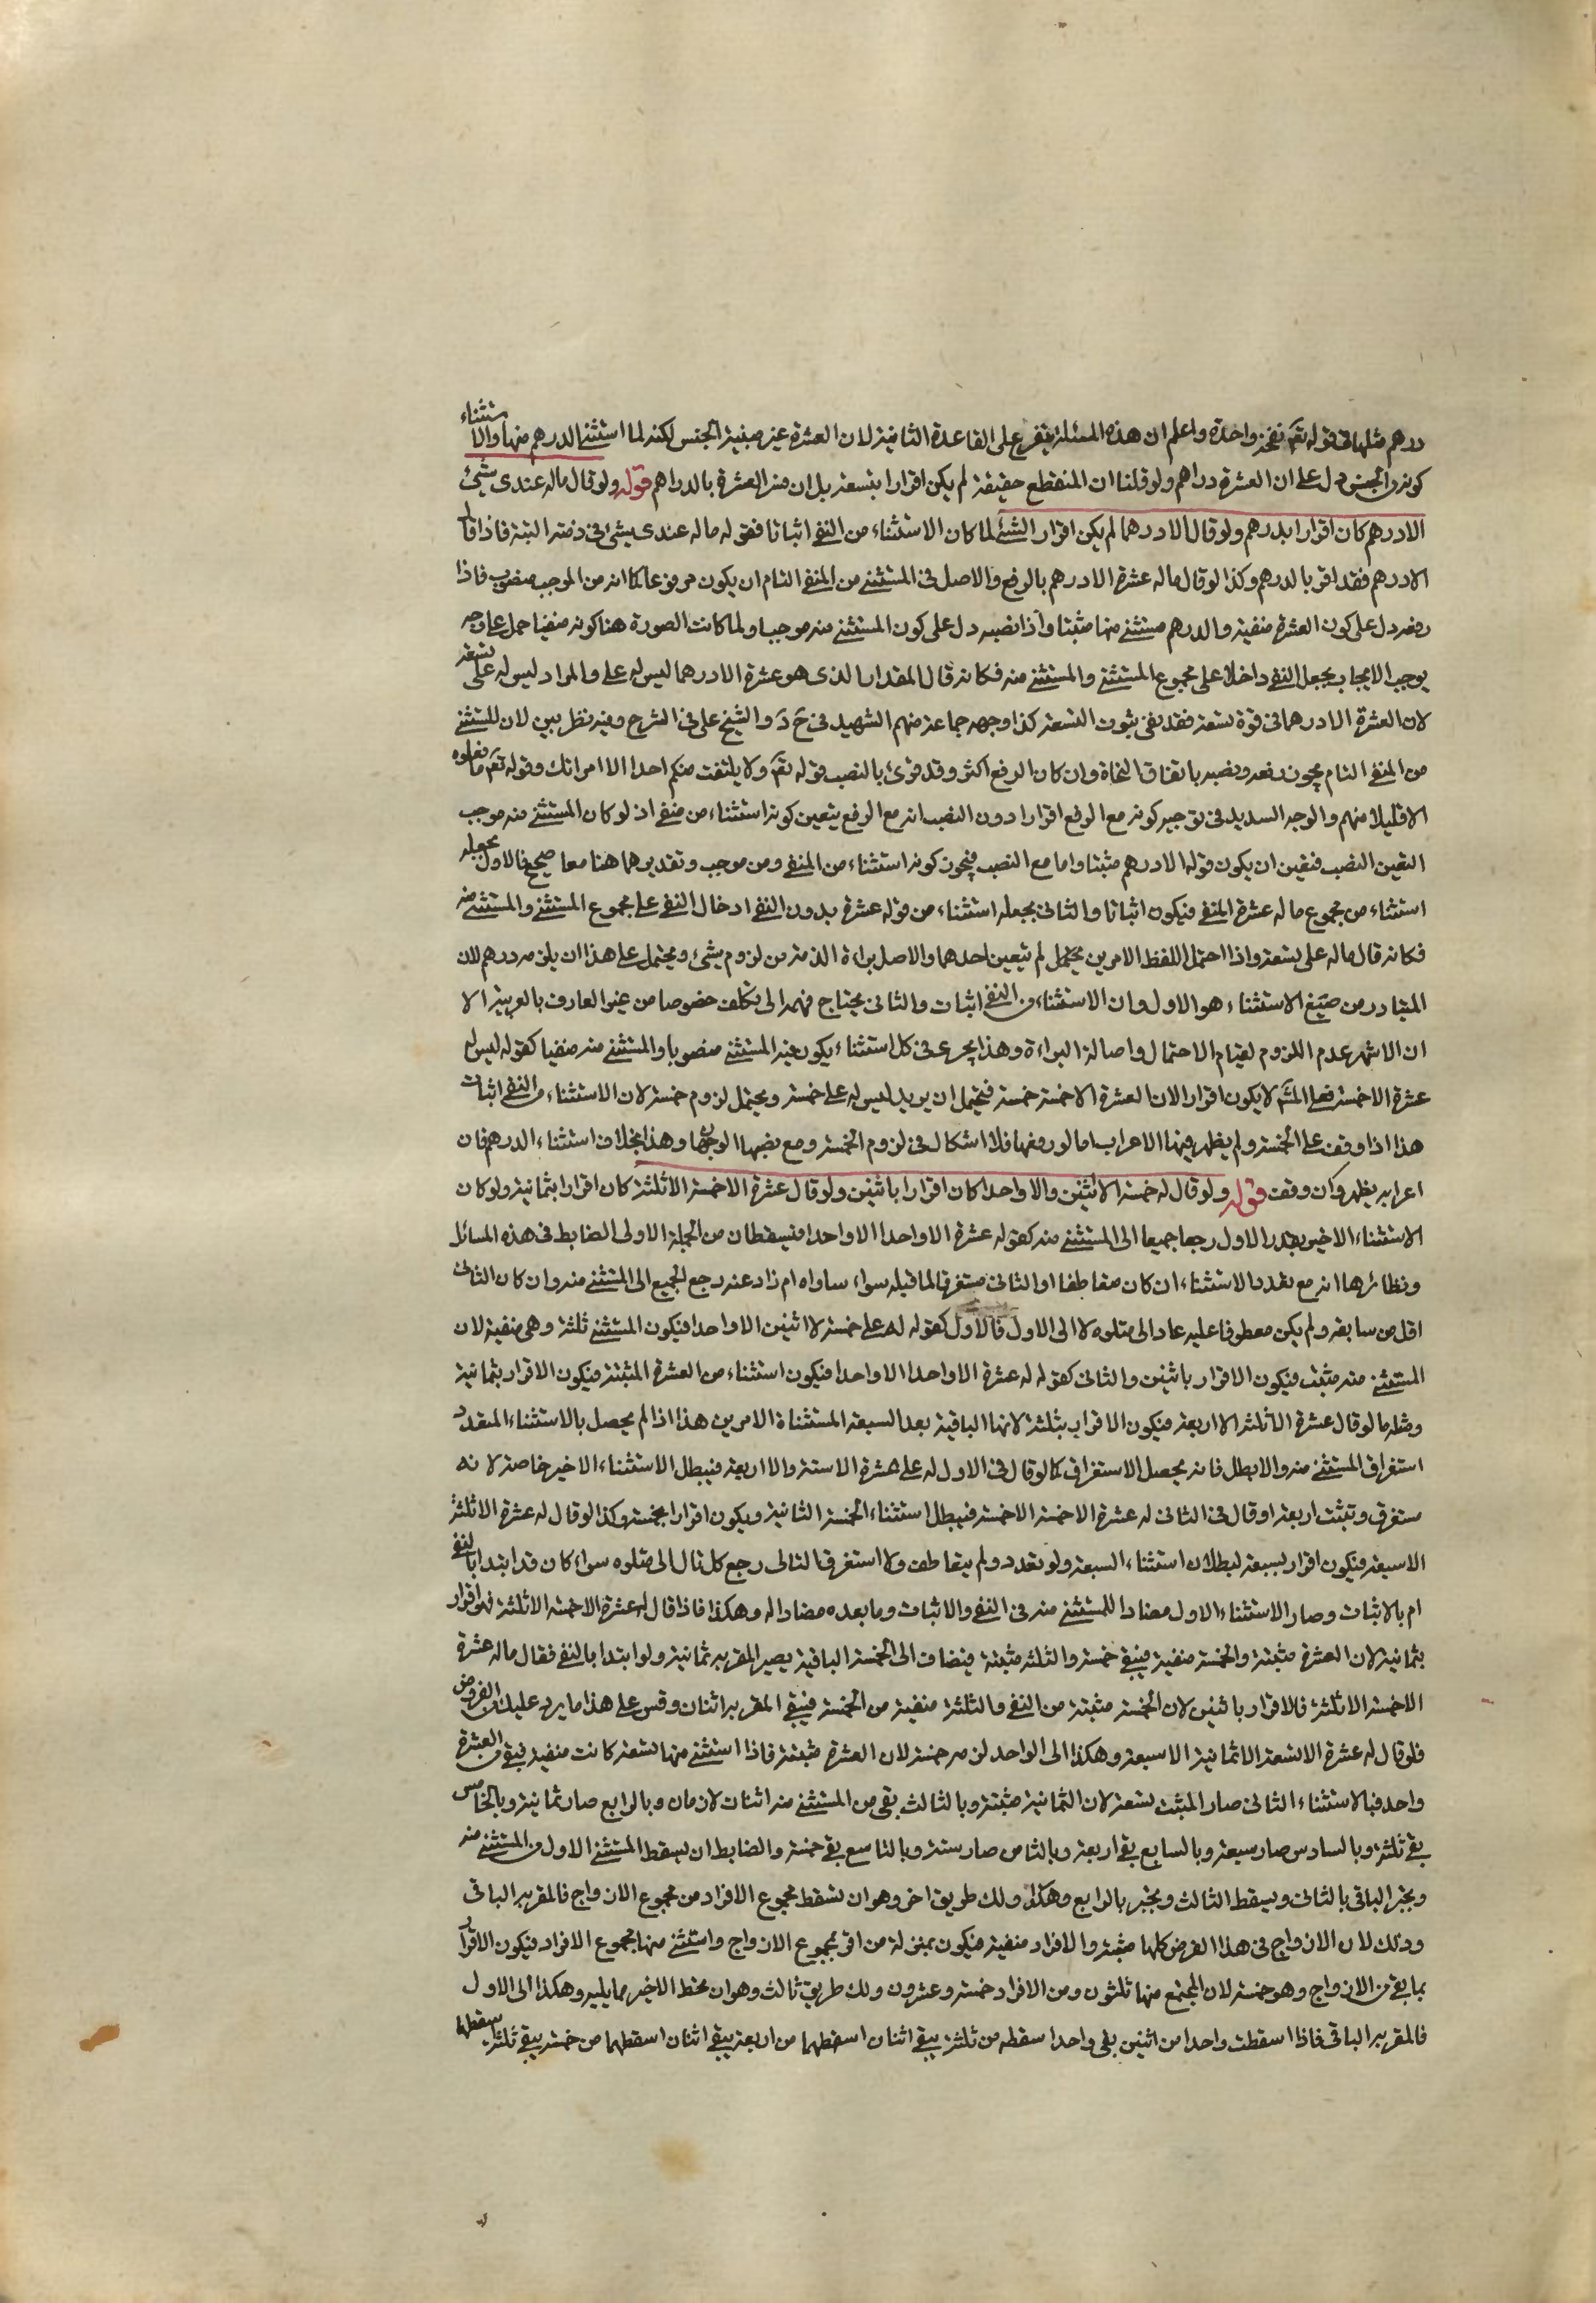 درهم مثلها في قوله تعم نفخة واحدة واعلم ان هذه المسئلة يتفرع على القاعدة الثانية لان العشرة غير مبنية الجنس لكنه لما استثنى الدرهم منها والاستثناء
كونه من الجنس دل على ان العشرة دراهم ولو قلنا ان المنقطع حقيقة لم يكن اقرارا بتسعة بل ان فسر العشرة بالدراهم قوله ولو قال ماله عندى شيئ
الا درهم كان اقرارا بدرهم ولو قال الا درهما لم يكن اقرار الشئ لما كان الاستثناء من النفى اثباتا فقوله ماله عندى شيئ نفى ذمته البتة فاذا قال
الا درهم فقد اقر بالدرهم وكذا لو قال ماله عشرة الا درهم بالرفع والاصل فى المستثنى من المنفى التام ان يكون مرفوعا كما انه من الموجب منصوب فاذا
رفعه دل على كون العشرة منفية والدرهم مستثنى منها مثبتا واذا نصبه دل على كون المستثنى منه موجبا ولما كانت الصورة هنا كونه منفيا حمل على وجه
يوجب الايجاب بجعل النفى داخلا على مجموع المستثنى والمستثنى منه فكانه قال المقدار الذى هو عشرة الا درهما ليس له على والمراد ليس له على تسعة
لان العشرة الا درهما فى قوة تسعة فقد نفى ثبوت التسعة كذا وجهه جماعة منهم الشهيد فى ح د والشيخ على فى الشرح وفيه نظر بين لان المستثنى
من المنفى التام يجوز رفعه ونصبه باتفاق النحاة وان كان الرفع اكثر وقد قرئ بالنصب قوله تعم ولا يلتفت منكم احدا الا امراتك وقوله تعم ما فعلوه
الا قليلا منهم والوجه السديد فى توجيه كونه مع الرفع اقرارا دون النصب انه مع الرفع يتعين كونه استثناء من منفى اذ لو كان المستثنى منه موجب
التعين النصب فتعين ان يكون قوله الا درهم مثبتا واما مع النصب فيجوز كونه استثناء من المنفى ومن موجب وتقديرهما هنا معا صحيح فالاول بجعله
استثناء من مجموع ماله عشرة المنفى فيكون اثباتا والثانى بجعله استثناء من قوله عشرة بدون النفى ادخال النفى على مجموع المستثنى والمستثنى منه
فكانه قال ماله على تسعة واذا احتمل اللفظ الامرين لم يتعين احدهما والاصل براءة الذمة من لزوم شيئ ويحتمل على هذا ان يلزمه درهم لان
المتبادر من صيغ الاستثناء هو الاول وان الاستثناء من النفى اثبات والثانى يحتاج فهمه الى تكلف خصوصا من غير العارف بالعربية الا
ان الاشهر عدم اللزوم لقيام الاحتمال واصالة البراءة وهذا يجرى فى كل استثناء يكون فيه المستثنى منصوبا والمستثنى منه منفيا كقوله ليس له
عشرة الا خمسة فعلى المشهـ لا يكون اقرارا لان العشرة الا خمسة خمسة فيحتمل ان يريد ليس له على خمسة ويحتمل لزوم خمسة لان الاستثناء من النفى اثبات
هذا اذا وقف على الخمسة ولم يظهر فيها الاعراب اما لو رفعها فلا اشكال فى لزوم الخمسة ومع نصبها الوجهان وهذا بخلاف استثناء الدرهم فان
اعرابه يظهر وان وقف قوله ولو قال له خمسة الا اثنين والا واحدا كان اقرارا باثنين ولو قال عشرة الا خمسة الا ثلثة كان اقرارا بثمانية ولو كان
الاستثناء الاخير بقدر الاول رجعا جميعا الى المستثنى منه كقوله عشرة الا واحدا الا واحدا فيسقطان من الجملة الاولى الضابط فى هذه المسائل
ونظائرها انه مع تعدد الاستثناء ان كان متعاطفا او الثانى مستغرقا لما قبله سواء ساواه ام زاد عنه رجع الجميع الى المستثنى منه وان كان الثانى
اقل من سابقه ولم يكن معطوفا عليه عاد الى متلوه لا الى الاول فالاول كقوله له على خمسة الا اثنين الا واحدا فيكون المستثنى ثلثة وهى منفية لان
المستثنى منه مثبت فيكون الاقرار باثنين والثانى كقوله له عشرة الا واحدا الا واحدا فيكون استثناء من العشرة المثبتة فيكون الاقرار بثمانية
ومثله ما لو قال عشرة الا ثلثة الا اربعة فيكون الاقرار بثلثة لانها الباقية بعد السبعة المستثناة الامرين هذا اذا لم يحصل بالاستثناء المتعدد
استغراق المستثنى منه والا بطل فانه يحصل الاستغراق كما لو قال فى الاول له على عشرة الا ستة والا اربعة فيبطل الاستثناء الاخير خاصة لانه
مستغرق وتثبت اربعة او قال فى الثانى له عشرة الا خمسة الا خمسة فيبطل استثناء الخمسة الثانية ويكون اقرارا بخمسة وكذا لو قال له عشرة الا ثلثة
الا سبعة فيكون اقرار بسبعة لبطلان استثناء السبعة ولو تعدد ولم يتعاطف ولا استغرق التالى رجع كل تال الى متلوه سواء كان قد ابتدا بالنفى
ام بالاثبات وصار الاستثناء الاول مضادا للمستثنى منه فى النفى والاثبات وما بعده مضادا له وهكذا فاذا قال له عشرة الا خمسة الا ثلثة فهو اقرار
بثمانية لان العشرة مثبتة والخمسة منفية فيبقى خمسة والثلثة مثبتة فيضاف الى الخمسة الباقية يصير المقر به ثمانية ولو ابتدا بالنفى فقال ماله عشرة
الا خمسة الا ثلثة فالاقرار باثنين لان الخمسة مثبتة من النفى والثلثة منفية من الخمسة فيبقى المقر به اثنان وقس على هذا ما يرد عليك من الفروض
فلو قال له عشرة الا تسعة الا ثمانية الا سبعة وهكذا الى الواحد لزمه خمسة لان العشرة مثبتة فاذا استثنى منها تسعة كانت منفية فبقى من العشرة
واحد فبالاستثناء الثانى صار المثبت تسعة لان الثمانية مثبتة وبالثالث بقى من المستثنى منه اثنان لازمان وبالرابع صار ثمانية وبالخامس
بقى ثلثة وبالسادس صار سبعة وبالسابع بقى اربعة وبالثامن صار ستة وبالتاسع بقى خمسة والضابط ان يسقط المستثنى الاول من المستثنى منه
ويجبر الباقى بالثانى ويسقط الثالث ويجبر بالرابع وهكذا ولك طريق اخر وهو ان تسقط مجموع الافراد من مجموع الازواج فالمقر به الباقى
وذلك لان الازواج فى هذا الفرض كلها مثبتة والافراد منفية فيكون بمنزلة من اقر بمجموع الازواج واستثنى منها مجموع الافراد فيكون الاقرار
بما بقى من الازواج وهو خمسة لان المجتمع منها ثلثون ومن الافراد خمسة وعشرون ولك طريق ثالث وهو ان تحط الاخير مما يليه وهكذا الى الاول
فالمقر به الباقى فاذا اسقطت واحدا من اثنين بقى واحدا اسقطه من ثلثة يبقى اثنان اسقطهما من اربعة يبقى اثنان اسقطهما من خمسة يبقى ثلثة اسقطها